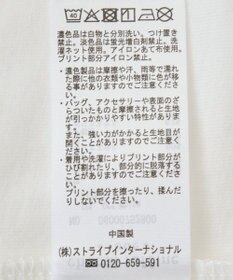 濃色品は白物と分別洗い。つけ置き
禁止。淡色品は蛍光増白剤禁止。洗
濯ネット使用。アイロンあて布使用。
プリント部分アイロン禁止。
・濃色製品は摩擦や汗、雨等で濡
れた際に他の衣類や小物類に色が移
る事がありますのでご注意くださ
い。
・バッグ、アクセサリーや表面のざ
らついたものと摩擦されると生地
が引っかかりやすい特性がありま
す。
また、強い力がかかると生地目が
開くことがありますのでご注意くだ
さい。
・着用や洗濯によりプリント部分が
ひび割れたり、部分的に脱落するこ
とがあります。
プリント部分を擦ったり、揉んだ
りしないでください。
中国製
(株)ストライプインターナショナル
☏0120-659-591